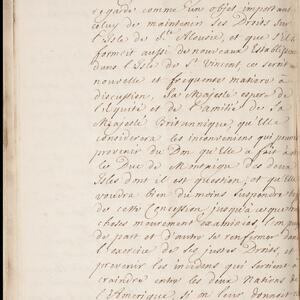 regardé comme un objet important
celuy de maintenir ses Droits sur
l'Isle de Ste Alousie, et que s'il
formoit aussi de nouveaux Etablisse
dans l'Isle de St Vincent, ce seroit
nouvelle et frequente matiere à
discussion, Sa Majesté espere de
l'Equité et de l'amitié de Sa
Majesté Britannique qu'elle
considerera les inconveniens qui pour
provenir du Don qu'elle a fait à
le Duc de Montaigu des deux
Isles dont il est question, et qu'elle
voudra bien du moins suspendre
de cette Concession jusqu'à ce que
choses meurement examinées l'on
de part et d'autre se renfermer dans
l'exercice de ses justes Droits, et
prevenir les incidens qui seroient à
craindre entre les deux Nations
l'Amerique, si on leur donnoit